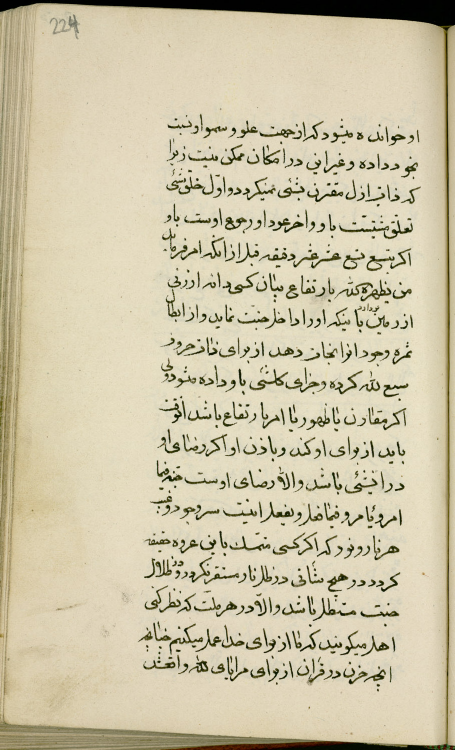 224
او خوانده میشود که از جهت علو و سمو او نسبت
بخود داده و غیر این در امکان ممکن نیست زیرا
که ذات ازل مقترن بشیء نمیگردد و اول خلق شیء
تعلق مشیت است باو و اخر عود او رجوع اوست باو
اگر بتسع تسع عشر عشر دقیقه قبل از انکه امر فرماید
من یظهره الله بارتفاع بیان کسی دانه ارزنی
از زمین بردارد تا اینکه او را داخل جنت نماید و از ابطال
ثمره وجود انرا نجات دهد از برای ذات حروف
سبع لله کرده و جزای کلشیء باو داده میشود ولی
اگر مقارن با ظهور یا امر بارتفاع باشد انوقت
باید از برای او کند و باذن او اگر رضای او
در انشیء باشد و الا رضای اوست
امر و یا مر و فیما فعل و یفعل اینست سر وجود و غیب
هر نار و نور که اگر کسی متمسک باین عروه حقیقیه
گردد در هیچ شأنی در ظل نار مستقر نگردد و در ظلال
جنت متظلل باشد و الا در هر ملت که نظر کنی
اهل میگویند که ما از برای خدا عمل میکنیم چنانچه
انچه حزن در قران از برای مرایای لله واقع شد